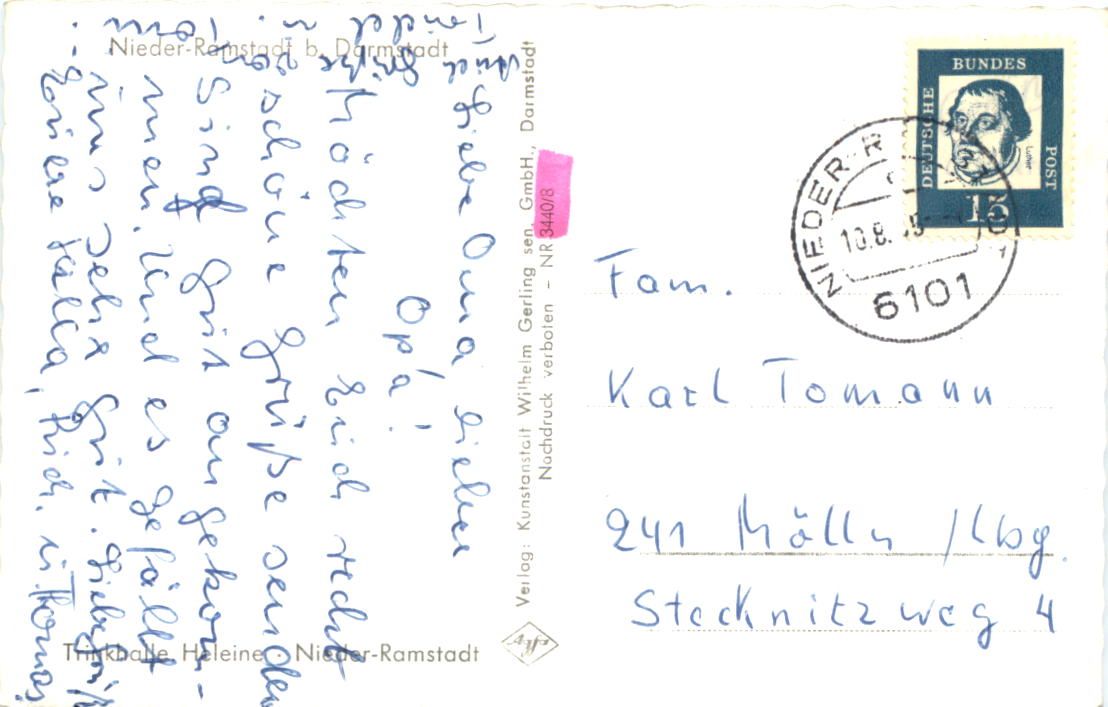 Nieder-Ramstadt b. Darmstadt
Liebe Oma lieber
Opa!
Möchten Euch recht
schöne Grüße senden
Sind gut angekom-
men. Und es gefällt
uns sehr gut. Liebe Grüße
Eure
u. Thomas
Auch Grüße von
u.
Trinkhalle Heleine · Nieder-Ramstadt
Verlag: Kunstanstalt Wilhelm Gerling sen. GmbH., Darmstadt
Nachdruck verboten – NR 3440/8
DEUTSCHE
BUNDES
POST
Luther
15
NIEDER-R
10.8.
6101
Fam.
Karl Tomann
241 Mölln /Lbg.
Stecknitzweg 4